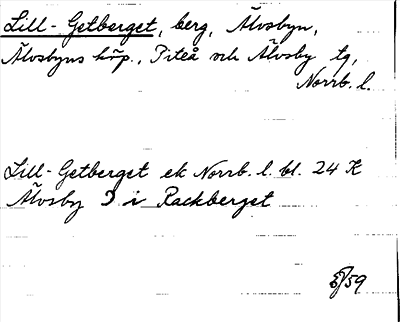 Lill-Getberget, berg, Älvsbyn,
Älvsbyns köp., Piteå och Älvsby tg,
Norrb. l.
Lill-Getberget ek Norrb. l. bl. 24 K
Älvsby I i Rackberget
59